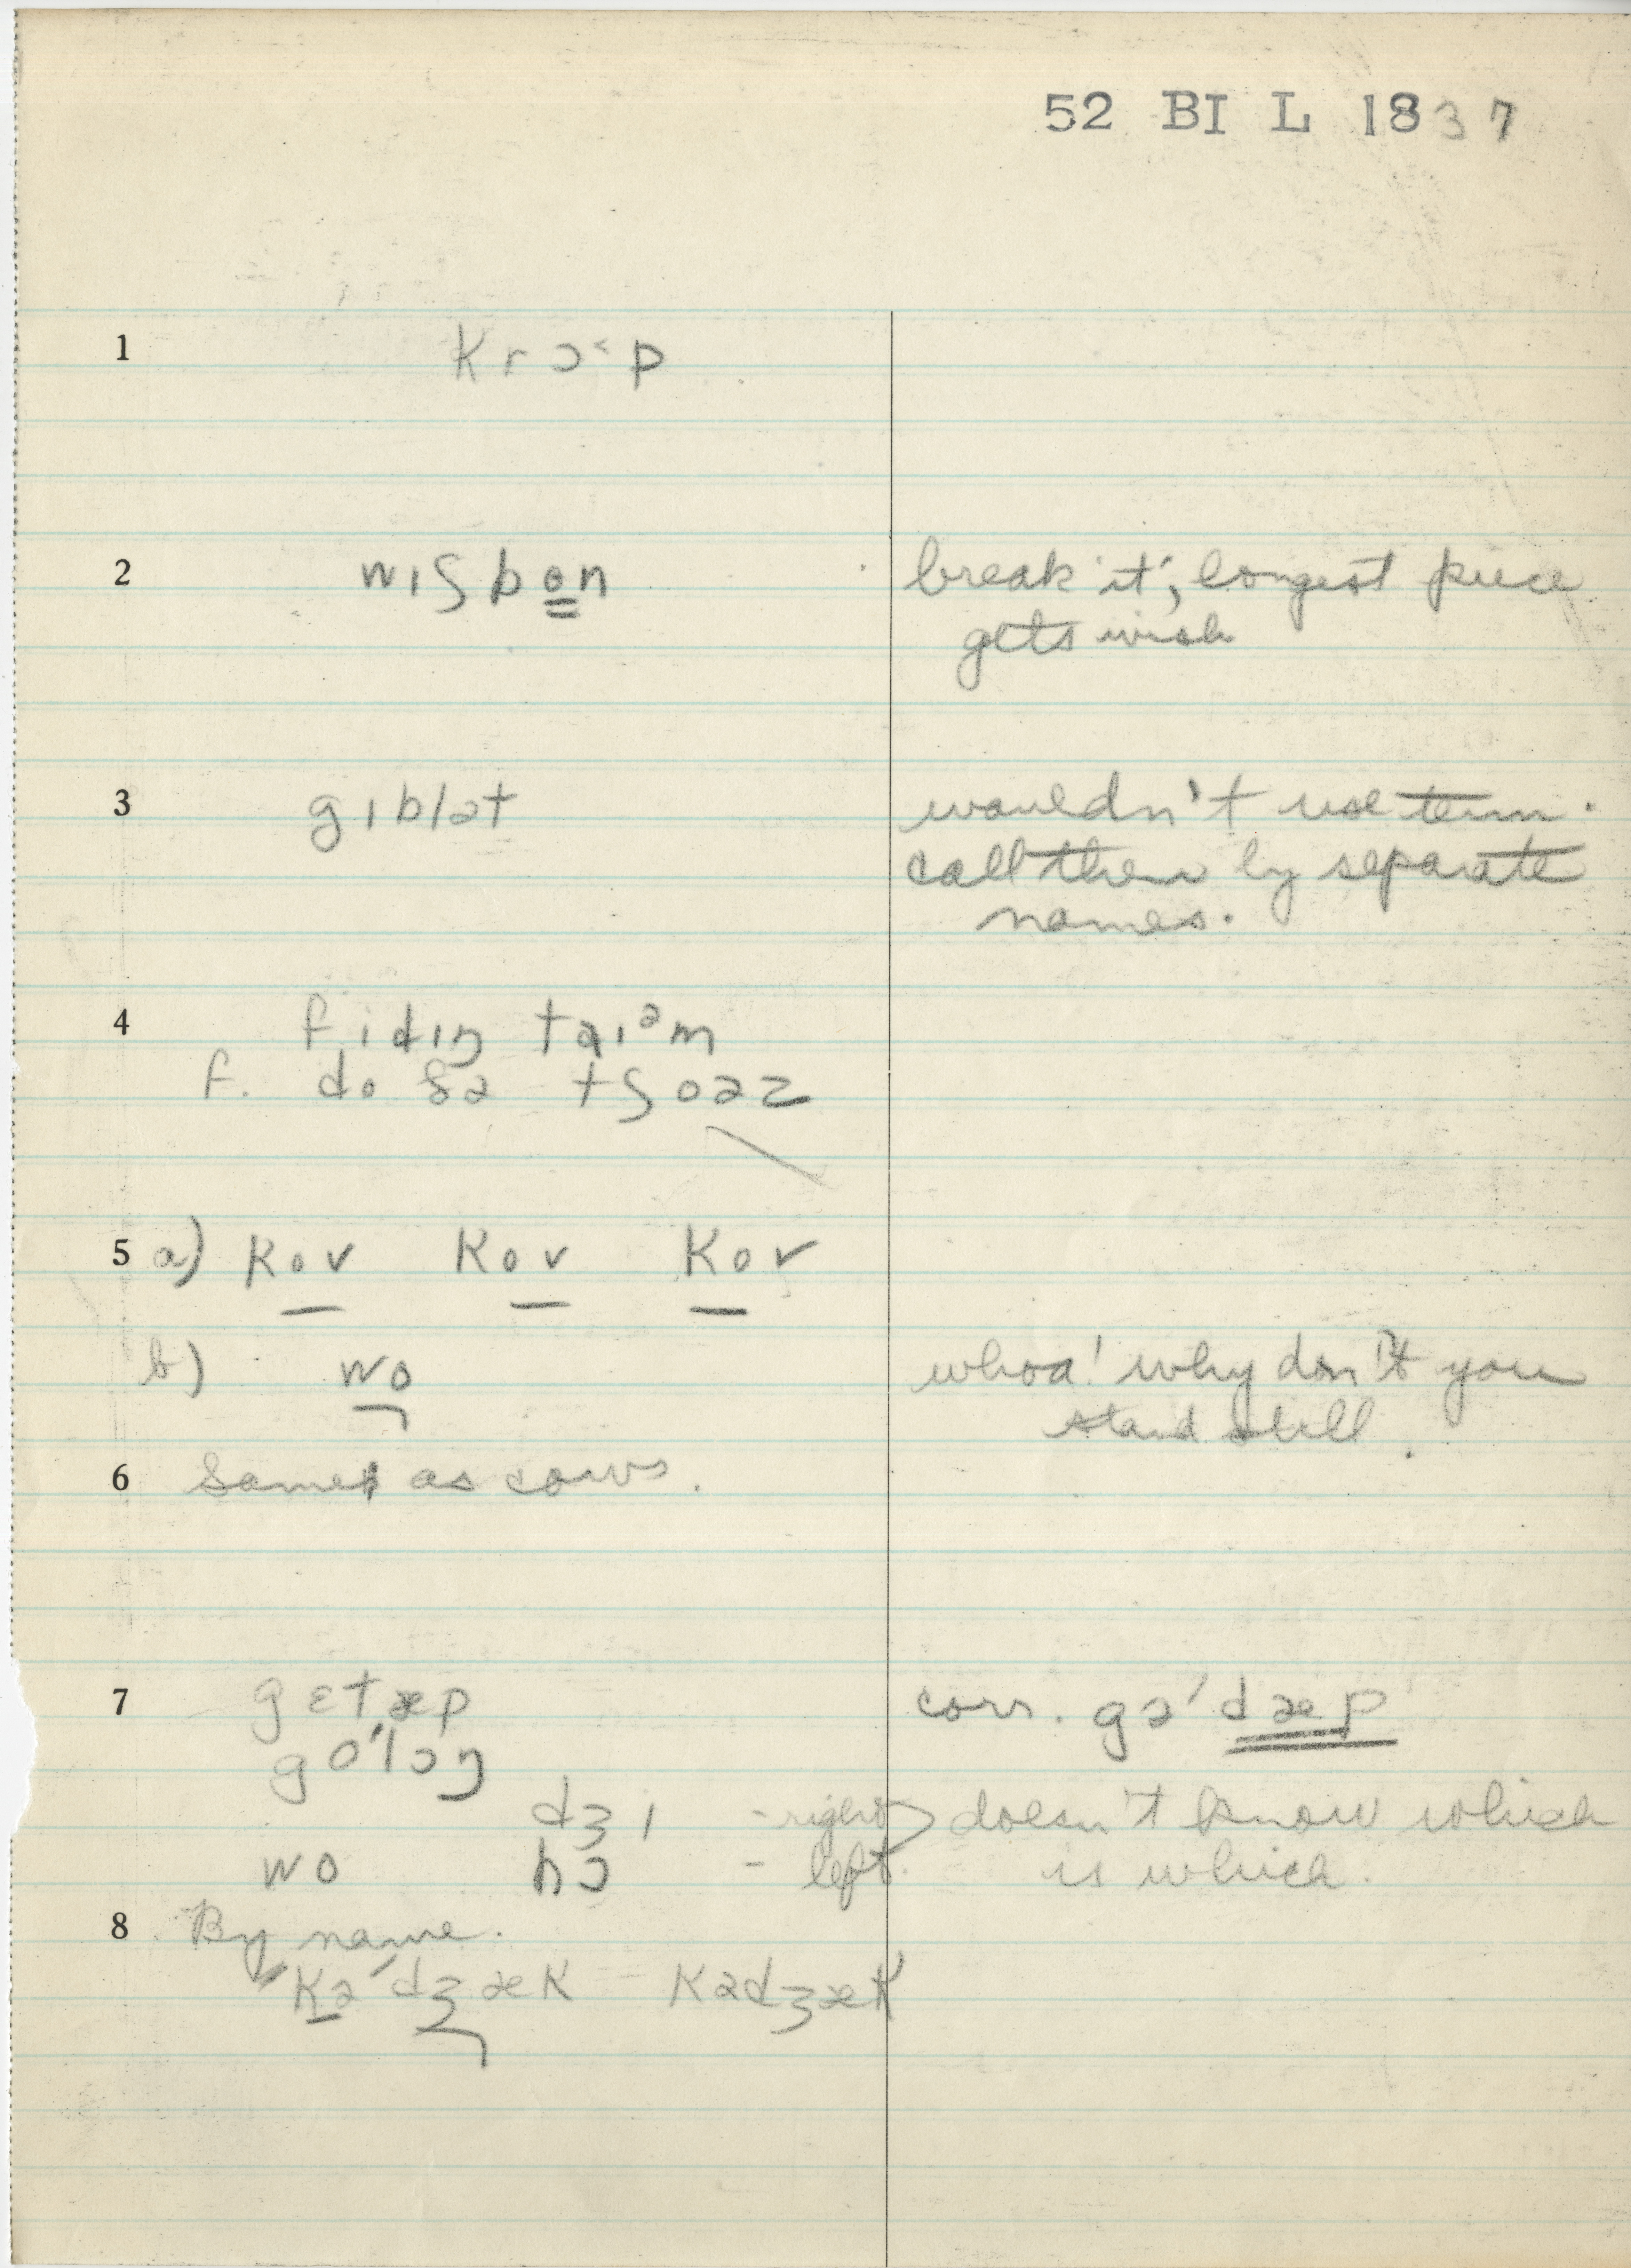 52 BI L 1837
1 krɔ˂p
2 wɪʃbo̳n break 'it'; longest piece
gets wish
3 gɪblət wouldn't use term.
call them by separate
names.
4 fidɪŋ taɪᵊm
f. do ðə tʃoəz
5 a) kov kov kov
b) wo whoa! why don't you
stand still.
6 Same as cows.
7 gɛtæp corr. gə'dæp
go'lɔŋ
dʒi - right doesn't know which
wo hɔ - left. is which.
8 By name.
'kə'dʒæk kədʒæk